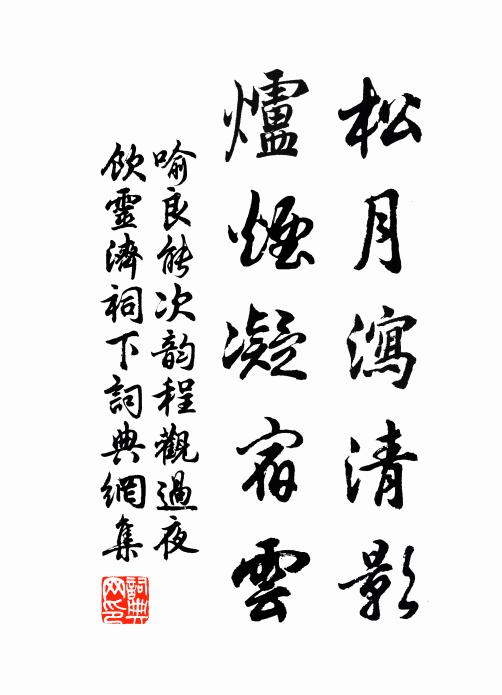 松月瀉清影
爐煙凝宿雲
喻良能次韵程觀過夜
飲靈濟祠下詞典網集
詞典网印